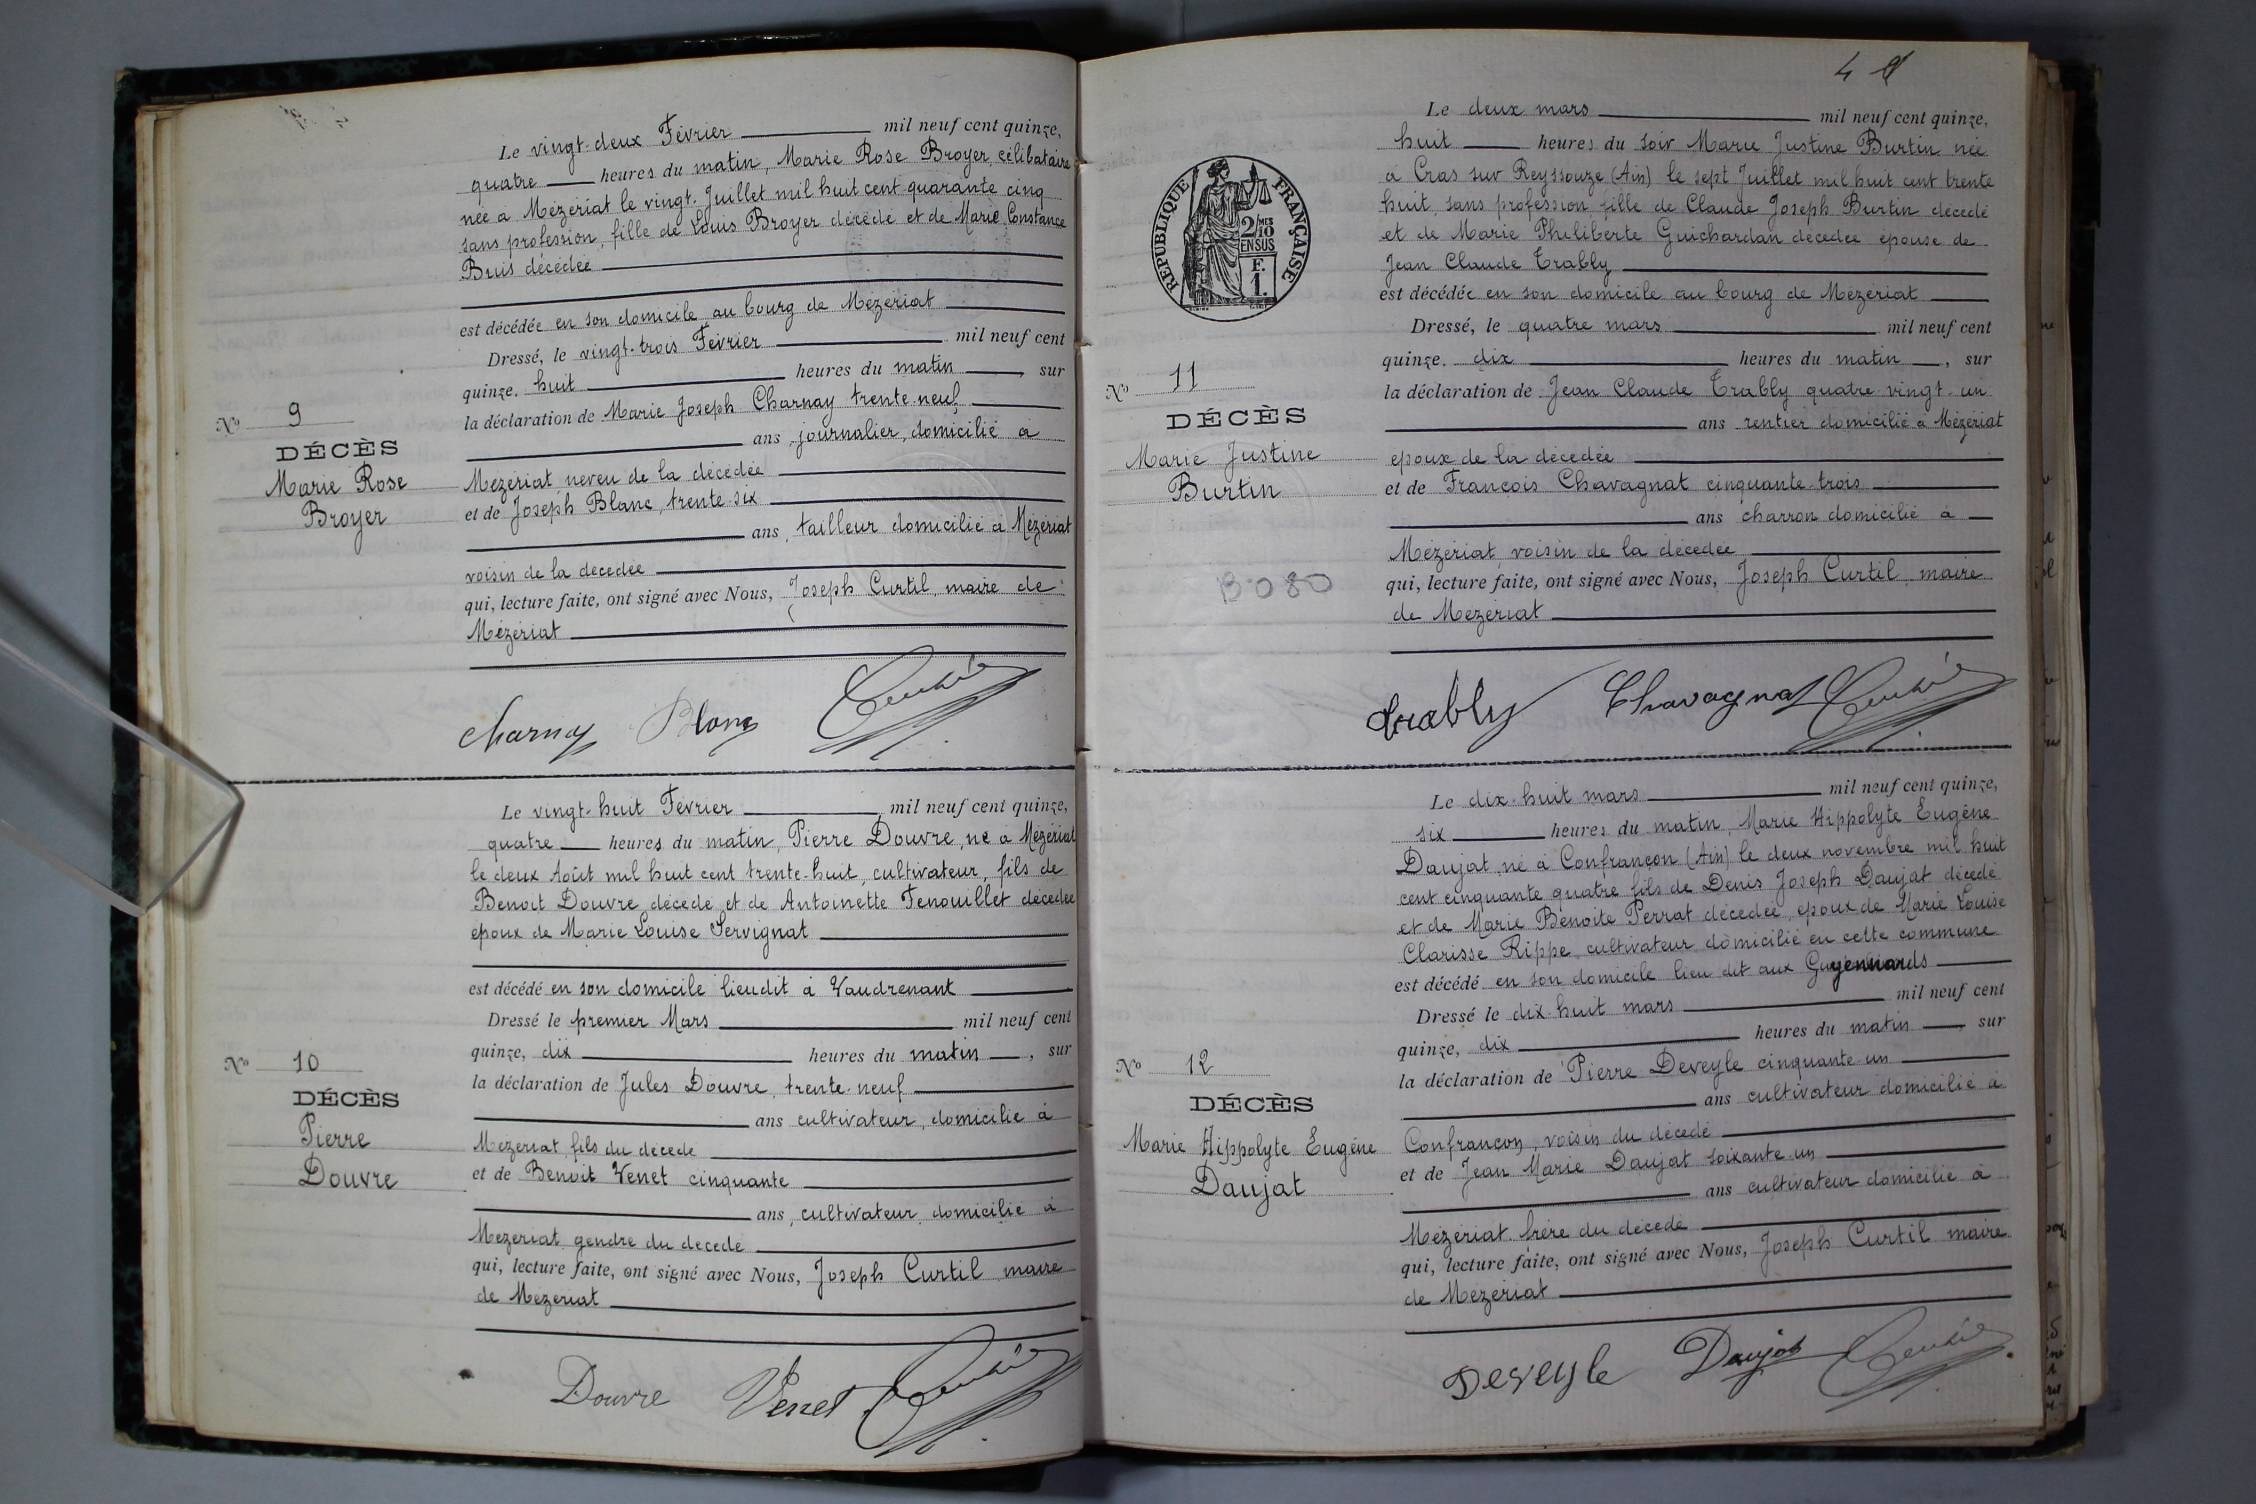 Le vingt-deux Février mil neuf cent quinze,
quatre heures du matin, Marie Rose Broyer, célibataire
née à Mézériat le vingt Juillet mil huit cent quarante cinq
sans profession, fille de Louis Broyer décédé et de Marie Constance
Buis décédée
est décédée en son domicile au bourg de Mézériat
Dressé, le vingt-trois Février mil neuf cent
quinze, huit heures du matin, sur
la déclaration de Marie Joseph Charnay trente neuf
ans, journalier, domicilié à
Mézériat neveu de la décédée
et de Joseph Blanc, trente-six
ans, tailleur domicilié à Mézériat
voisin de la décédée
qui, lecture faite, ont signé avec Nous, Joseph Curtil, maire de
Mézériat
No 9
DÉCÈS
Marie Rose
Broyer
Charnay Blanc Curtil
Le vingt-huit Février mil neuf cent quinze,
quatre heures du matin, Pierre Douvre, né à Mézériat
le deux Août mil huit cent trente-huit, cultivateur, fils de
Benoit Douvre décédé et de Antoinette Fenouillet décédée
époux de Marie Louise Servignat
est décédé en son domicile lieudit à Vaudrenant
Dressé le premier Mars mil neuf cent
quinze, dix heures du matin, sur
la déclaration de Jules Douvre, trente-neuf
ans cultivateur, domicilié à
Mézériat fils du décédé
et de Benoit Venet cinquante
ans, cultivateur, domicilié à
Mézériat gendre du décédé
qui, lecture faite, ont signé avec Nous, Joseph Curtil maire
de Mézériat
No 10
DÉCÈS
Pierre
Douvre
Douvre Venet Curtil
4
Le deux mars mil neuf cent quinze,
huit heures du soir Marie Justine Burtin née
à Cras sur Reyssouze (Ain) le sept Juillet mil huit cent trente
huit, sans profession fille de Claude Joseph Burtin décédé
et de Marie Philiberte Guichardan décédée épouse de
Jean Claude Trably
est décédée en son domicile au bourg de Mézériat
Dressé, le quatre mars mil neuf cent
quinze, dix heures du matin, sur
la déclaration de Jean Claude Trably quatre vingt-un
ans rentier domicilié à Mézériat
époux de la décédée
et de François Chavagnat cinquante-trois
ans charron domicilié à
Mézériat, voisin de la décédée
qui, lecture faite, ont signé avec Nous, Joseph Curtil, maire
de Mézériat
RÉPUBLIQUE FRANÇAISE
2/10 MES
EN SUS
F.
1.
No 11
DÉCÈS
Marie Justine
Burtin
B080
Trably Chavagnat Curtil
Le dix-huit mars mil neuf cent quinze,
six heures du matin, Marie Hippolyte Eugène
Daujat, né à Confrançon (Ain) le deux novembre mil huit
cent cinquante quatre fils de Denis Joseph Daujat décédé
et de Marie Benoite Perrat décédée, époux de Marie Louise
Clarisse Rippe, cultivateur domicilié en cette commune
est décédé en son domicile lieu dit aux Guyennards
Dressé le dix-huit mars mil neuf cent
quinze, dix heures du matin, sur
la déclaration de Pierre Deveyle cinquante-un
ans cultivateur domicilié à
Confrançon, voisin du décédé
et de Jean Marie Daujat soixante-un
ans cultivateur domicilié à
Mézériat frère du décédé
qui, lecture faite, ont signé avec Nous, Joseph Curtil maire
de Mézériat
No 12
DÉCÈS
Marie Hippolyte Eugène
Daujat
Deveyle Daujat Curtil